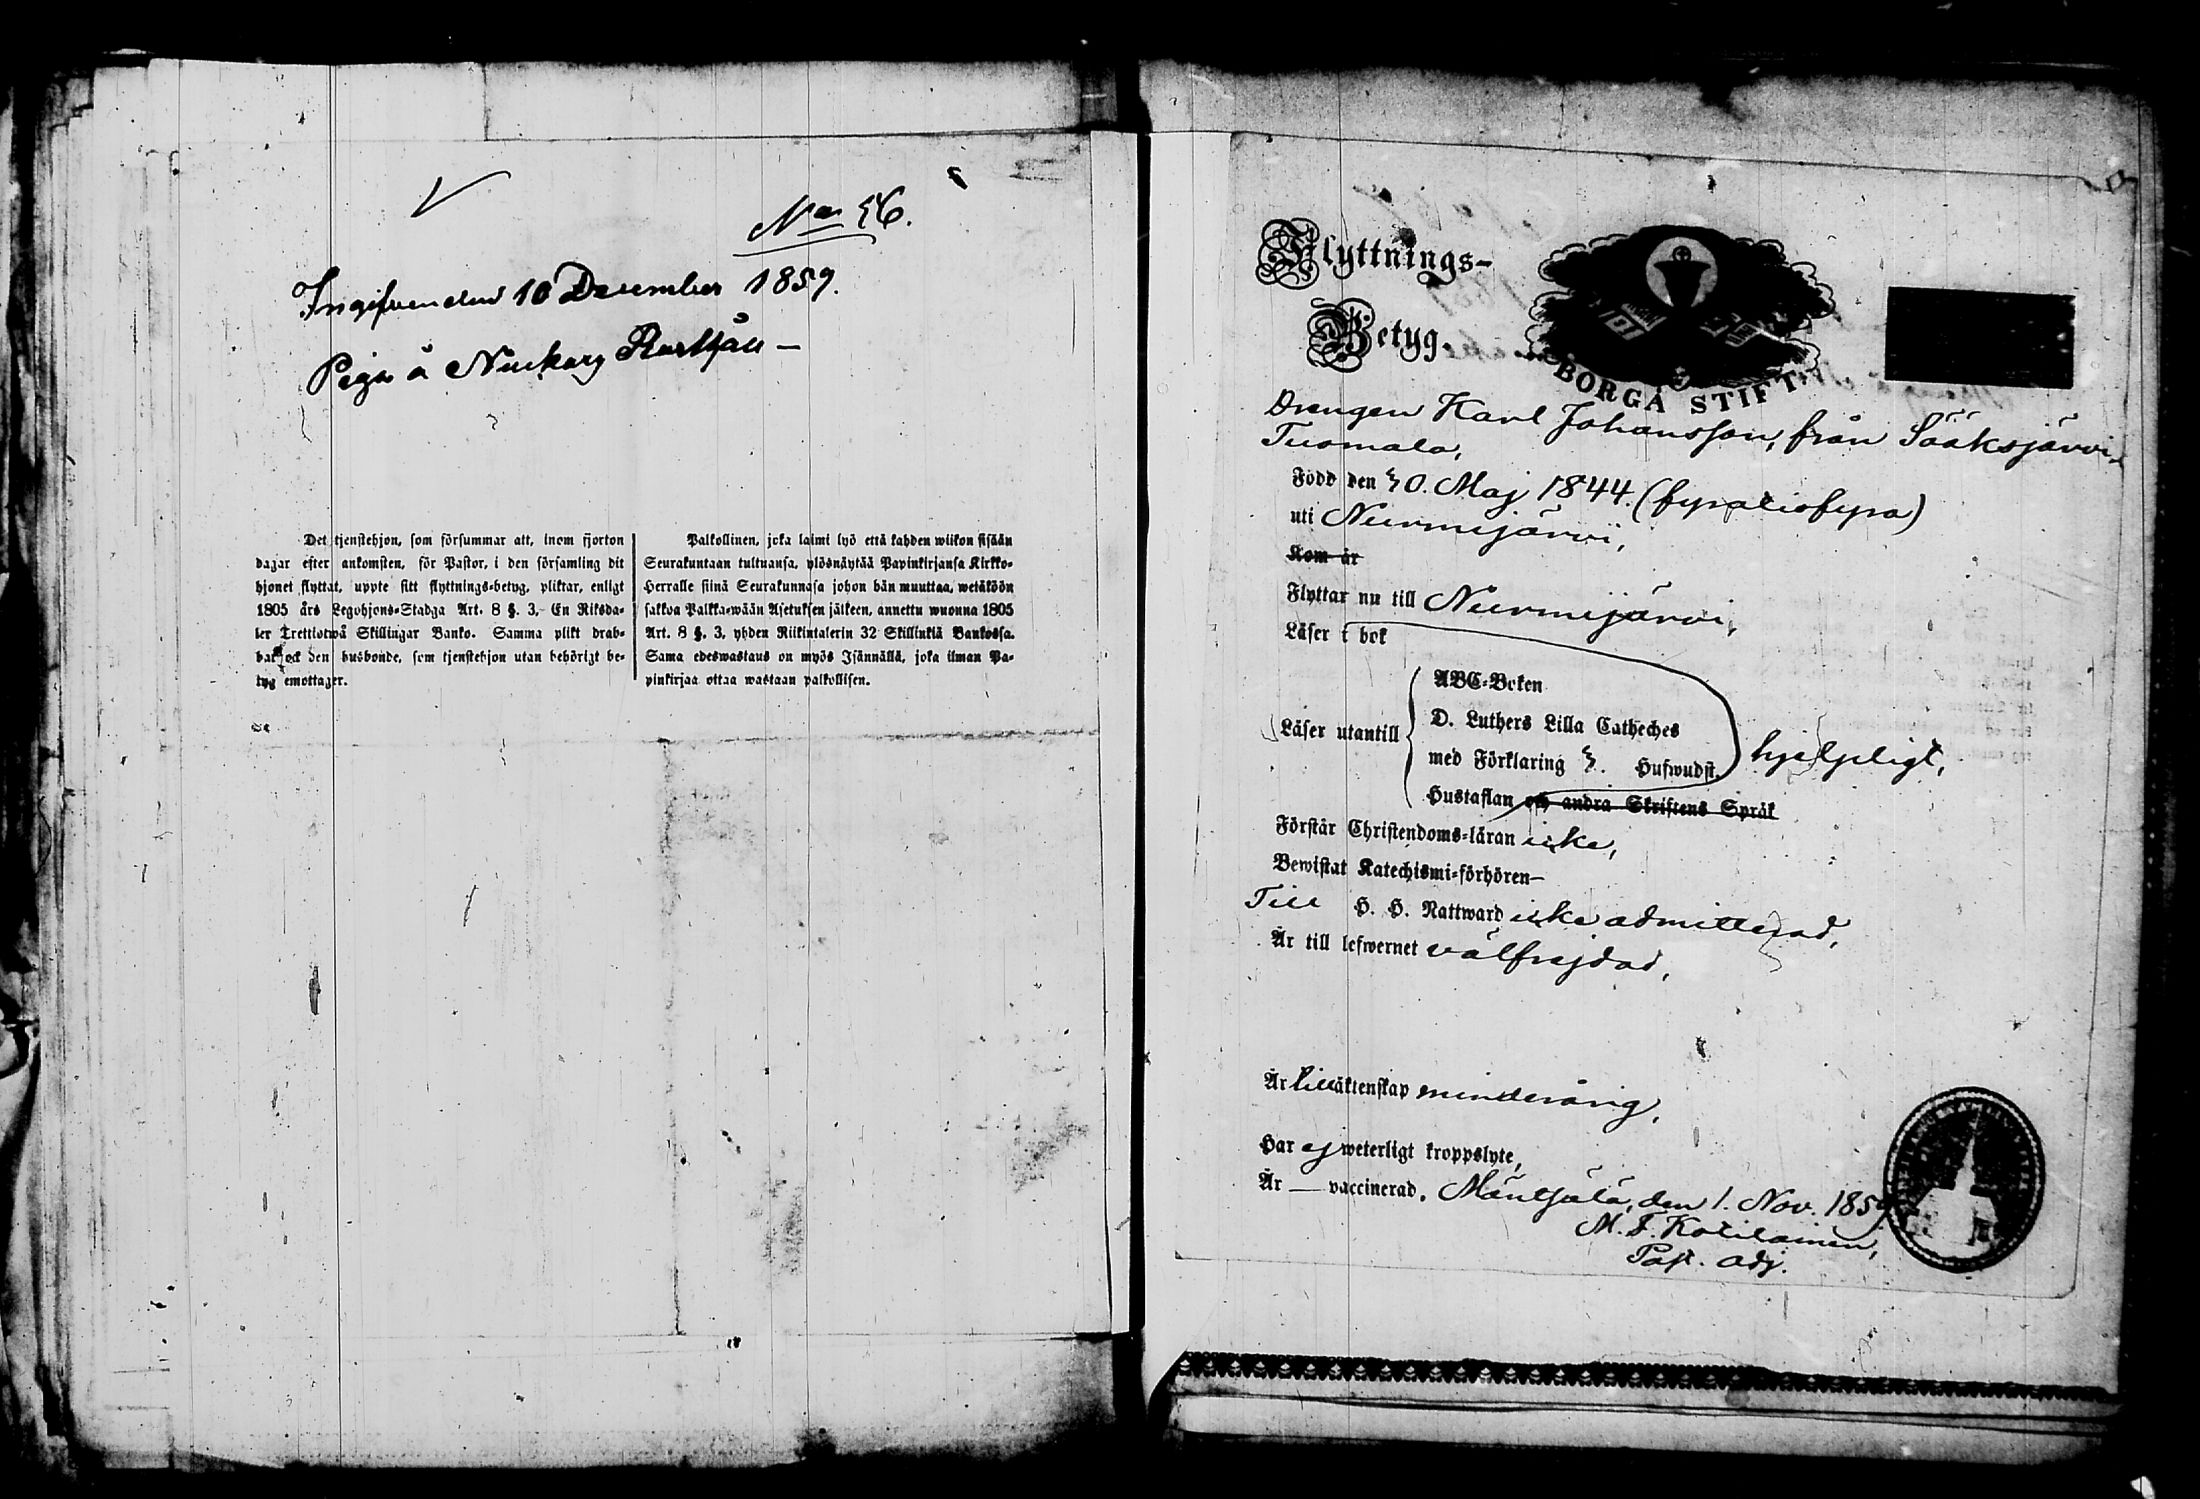 No 56.
Ingifven den 10 December 1859.
Piga å Nuckarg Rusthåll —
Det tjenstehjon, som försummar att, inom fjorton
dagar efter ankomsten, för Pastor, i den församling dit
hjonet flyttat, uppte sitt flyttnings-betyg, pliktar, enligt
1805 års Legohjons-Stadga Art. 8 §. 3, En Riksda-
ler Trettiotwå Skillingar Banko. Samma plikt drab-
bar ock den husbonde, som tjenstehjon utan behörigt be-
tyg emottager.
Palkollinen, joka laimi lyö että kahden wiikon sisään
Seurakuntaan tultuansa, ylösnäytää Papinkirjansa Kirkko-
Herralle siinä Seurakunnasa johon hän muuttaa, wetäköön
sakkoa Palkka-wään Asetuksen jälkeen, annettu wuonna 1805
Art. 8 §. 3, yhden Riikintalerin 32 Skillinkiä Bankossa.
Sama edeswastaus on myös Isännällä, joka ilman Pa-
pinkirjaa ottaa wastaan palkollisen.
Flyttnings-
Betyg.
BORGÅ STIFT
Drengen Karl Johansson, från Sääksjärvi
Tuomala,
Född den 30. Maj 1844. (fyratiofyra)
uti Nurmijärvi,
Kom år
Flyttar nu till Nurmijärvi,
Läser i bok
ABC-Boken
D. Luthers Lilla Catheches
Läser utantill
med Förklaring 3. Hufwudst. hjelpligt,
Hustaflan och andra Skriftens Språk
Förstår Christendoms-läran icke,
Bewistat Katechismi-förhören—
Till H. H. Nattward icke admitterad,
Är till lefwernet välfrejdad,
Är till äktenskap minderårig,
Har ej weterligt kroppslyte,
Är — vaccinerad. Mäntsälä, den 1. Nov. 1859
M. F. Kotilainen,
Past. adj.